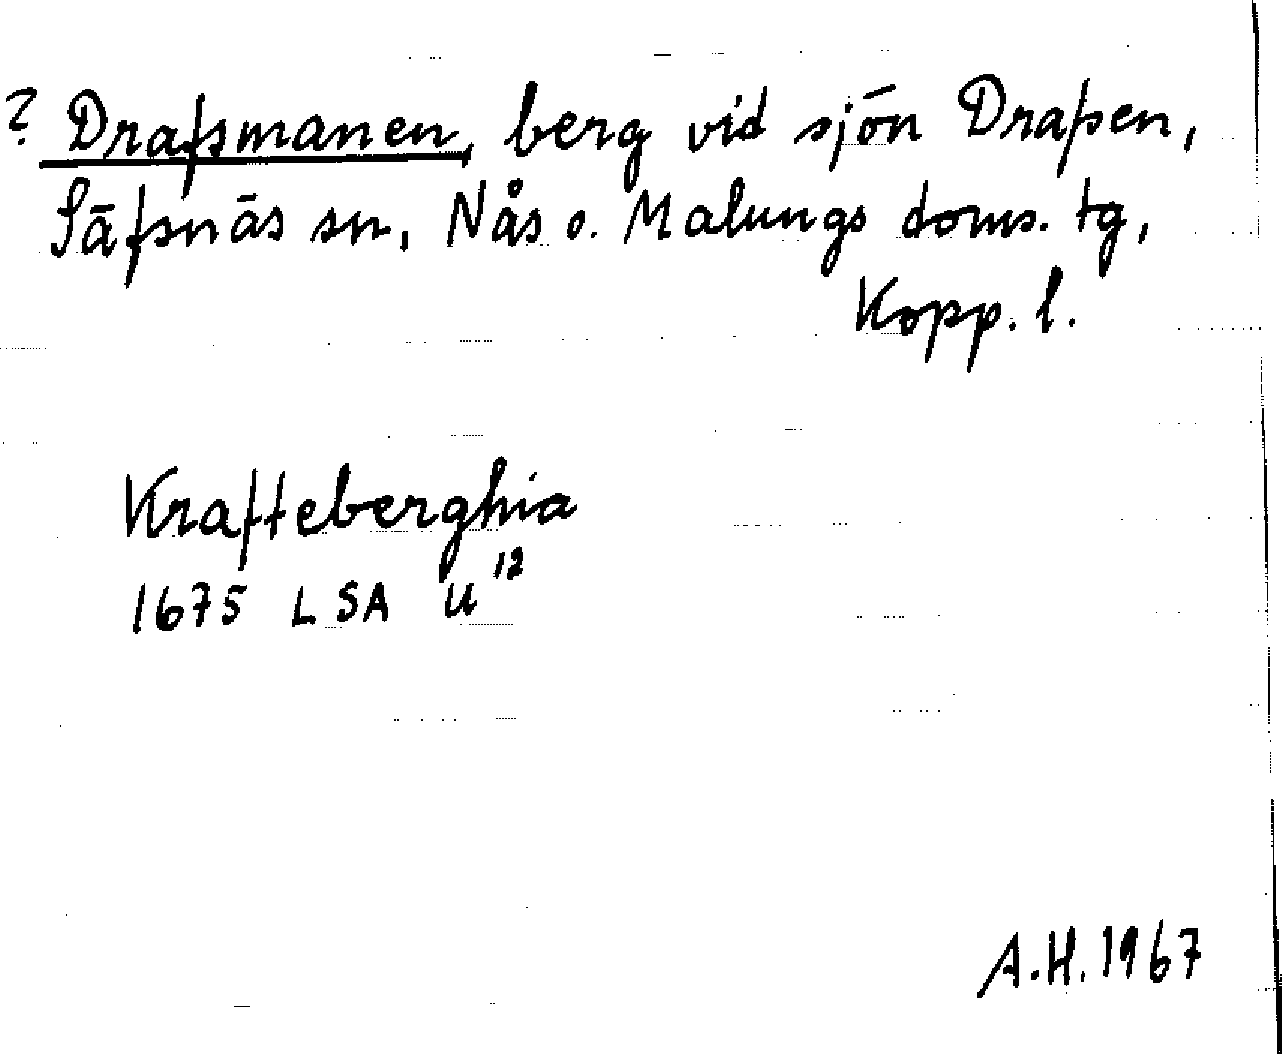 ? Drafsmanen, berg vid sjön Drafsen,
Säfsnäs sn, Nås o. Malungs doms. tg,
Kopp. l.
Krafteberghia
1675 LSA U 12
A.H. 1967